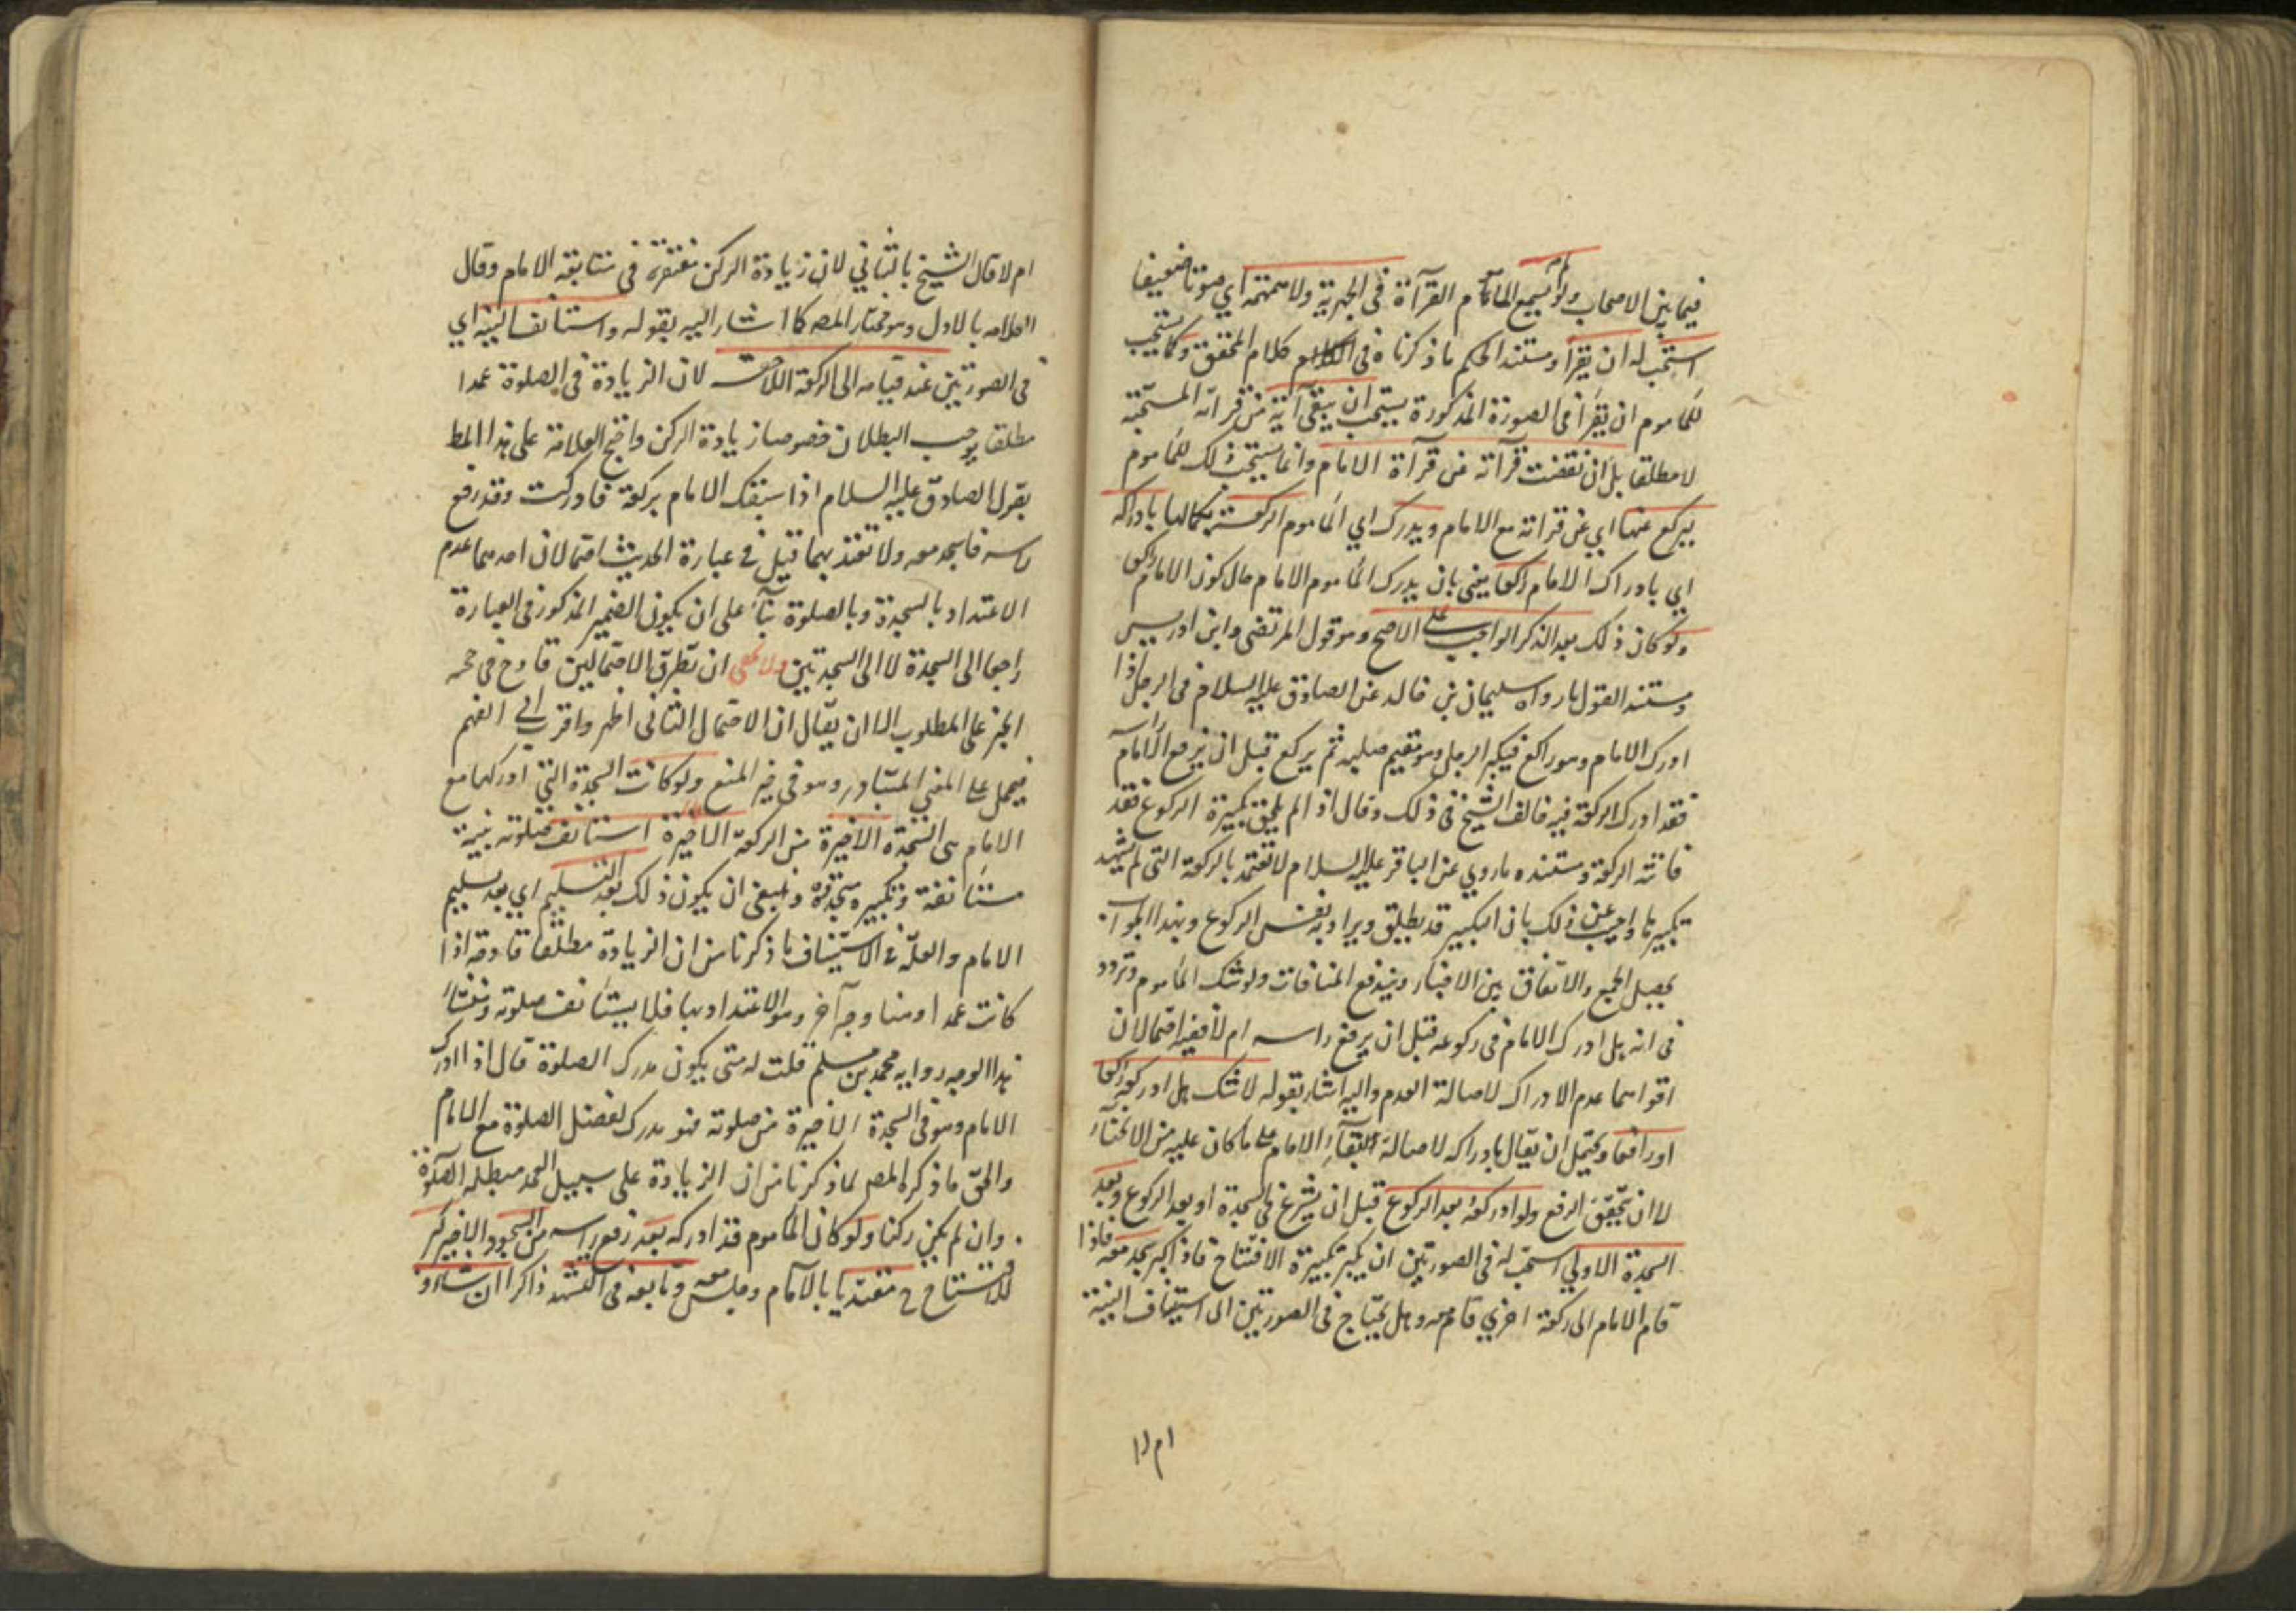 فيما بين الاصحاب ولو لم يسمع المأموم القرآءة في الجهرية ولا همهمة اي صوتا ضعيفا
استحب له ان يقرأ ومستند الحكم ما ذكرناه في كلام المحقق وكما يستحب
للمأموم ان يقرأ في الصورة المذكورة يستحب ان يبقى آية من قرآته المستحبة
لا مطلقا بل ان نقضت قرآته عن قرآءة الامام وانما يستحب ذلك للمأموم
ليركع عنها اي عن قراته مع الامام ويدرك اي المأموم الركعة بكمالها بادراكه
اي بادراك الامام راكعا يعني بان يدرك المأموم الامام حال كون الامام راكعا
ولو كان ذلك بعد الذكر الواجب على الاصح وهو قول المرتضى وابن ادريس
ومستند القول ما رواه سليمان بن خالد عن الصادق عليه السلام في الرجل اذا
ادرك الامام وهو راكع فيكبر الرجل وهو مقيم صلبه ثم يركع قبل ان يرفع الامام راسه
فقد ادرك الركعة فيه خالف الشيخ في ذلك وقال اذا لم يلحق تكبيرة الركوع فقد
فاتته الركعة ومستنده ما روي عن الباقر عليه السلام لا تعتد بالركعة التي لم تشهد
تكبيرها واجيب عن ذلك بان التكبير قد يطلق ويراد به نفس الركوع وبهذا الجواب
يحصل الجمع والاتفاق بين الاخبار ويندفع المنافات ولو شك المأموم وتردد
في انه هل ادرك الامام في ركوعه قبل ان يرفع راسه ام لا ففيه احتمالان
اقواهما عدم الادراك لاصالة العدم واليه اشار بقوله لا شك هل ادركه راكعا
او رافعا ويحتمل ان يقال بادراكه لاصالة بقآء الامام على ما كان عليه من الانحنآء
لا ان تحقق الرفع ولو ادركه بعد الركوع قبل ان يشرع في السجدة او بعد الركوع وبعد
السجدة الاولي استحب له في الصورتين ان يكبر تكبيرة الافتتاح فاذا كبر سجد معه فاذا
قام الامام الى ركعة اخري قام معه وهل يحتاج في الصورتين الى استيناف النية
ام لا
ام لا قال الشيخ بالثاني لان زيادة الركن مغتفرة في متابعة الامام وقال
العلامه بالاول وهو مختار المصـ كما اشار اليه بقوله واستانف النية اي
في الصورتين عند قيامه الى الركعة اللاحقة لان الزيادة في الصلوة عمدا
مطلقا يوجب البطلان خصوصا زيادة الركن واحتج العلامة على هذا المط
بقول الصادق عليه السلام اذا سبقك الامام بركعة فادركت وقد رفع
راسه فاسجد معه ولا تعتد بهما قيل في عبارة الحديث احتمالان احدهما عدم
الاعتداد بالسجدة وبالصلوة بنآء على ان يكون الضمير المذكور في العبارة
راجعا الى السجدة لا الى السجدتين ولا يخفى ان تطرق الاحتمالين قادح في حجـ
الخبر على المطلوب الا ان يقال ان الاحتمال الثاني اظهر واقرب الى الفهم
فيحمل على المعني المتبادر وهو في حيز المنع ولو كانت السجدة التي ادركها مع
الامام هي السجدة الاخيرة من الركعة الاخيرة استانف صلوته بنية
مستانفة وتكبيره بتجدده وينبغي ان يكون ذلك بعد التسليم اي بعد تسليم
الامام والعلة في الاستيناف ما ذكرنا من ان الزيادة مطلقا قادحة اذا
كانت عمدا وهنا وجه آخر وهو الاعتداد بها فلا يستانف صلوته ومنشاء
هذا الوجه رواية محمد بن مسلم قلت له متى يكون مدرك الصلوة قال اذا ادرك
الامام وهو في السجدة الاخيرة من صلوته فهو مدرك لفضل الصلوة مع الامام
والحق ما ذكره المصـ لما ذكرنا من ان الزيادة على سبيل العمد مبطلة الصلوة
وان لم يكن ركنا ولو كان المأموم قد ادركه بعد رفع راسه من السجود الاخير كبر
للاستفتاح ح مقتديا بالامام وجلس معه وتابعه في التشهد ذاكرا ان شاء و